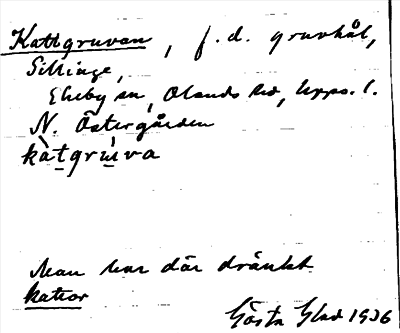 Kattgruvan, f.d. gruvhål,
Sillinge,
Ekeby sn, Olands hd, Upps. l.
N. Östergården
kàtgrùva
Man har där dränkt
kattor
Gösta Glad 1936